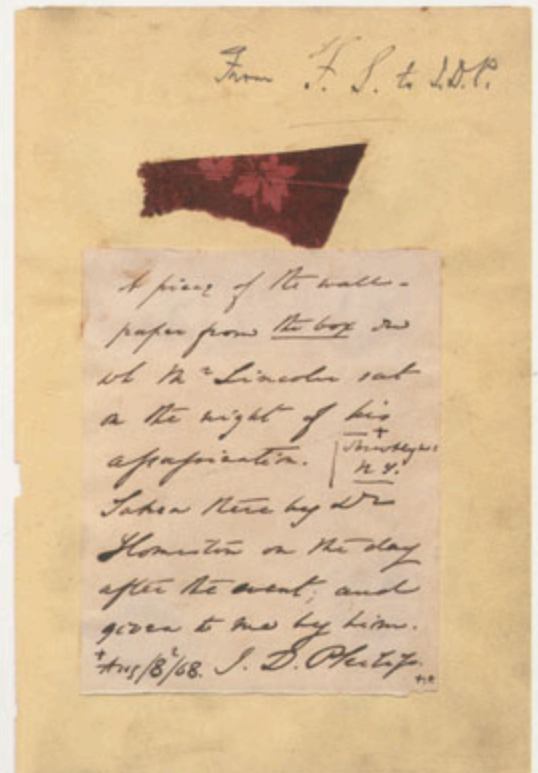 From F. S. to I.D.P.
A piece of the wall-
paper from the box in
wh Mr Lincoln sat
on the night of his
assassination. + Brooklyn
N.Y.
Taken there by Dr
Homiston on the day
after the event; and
given to me by him.
+ Aug/8/68. I. D. Philip.